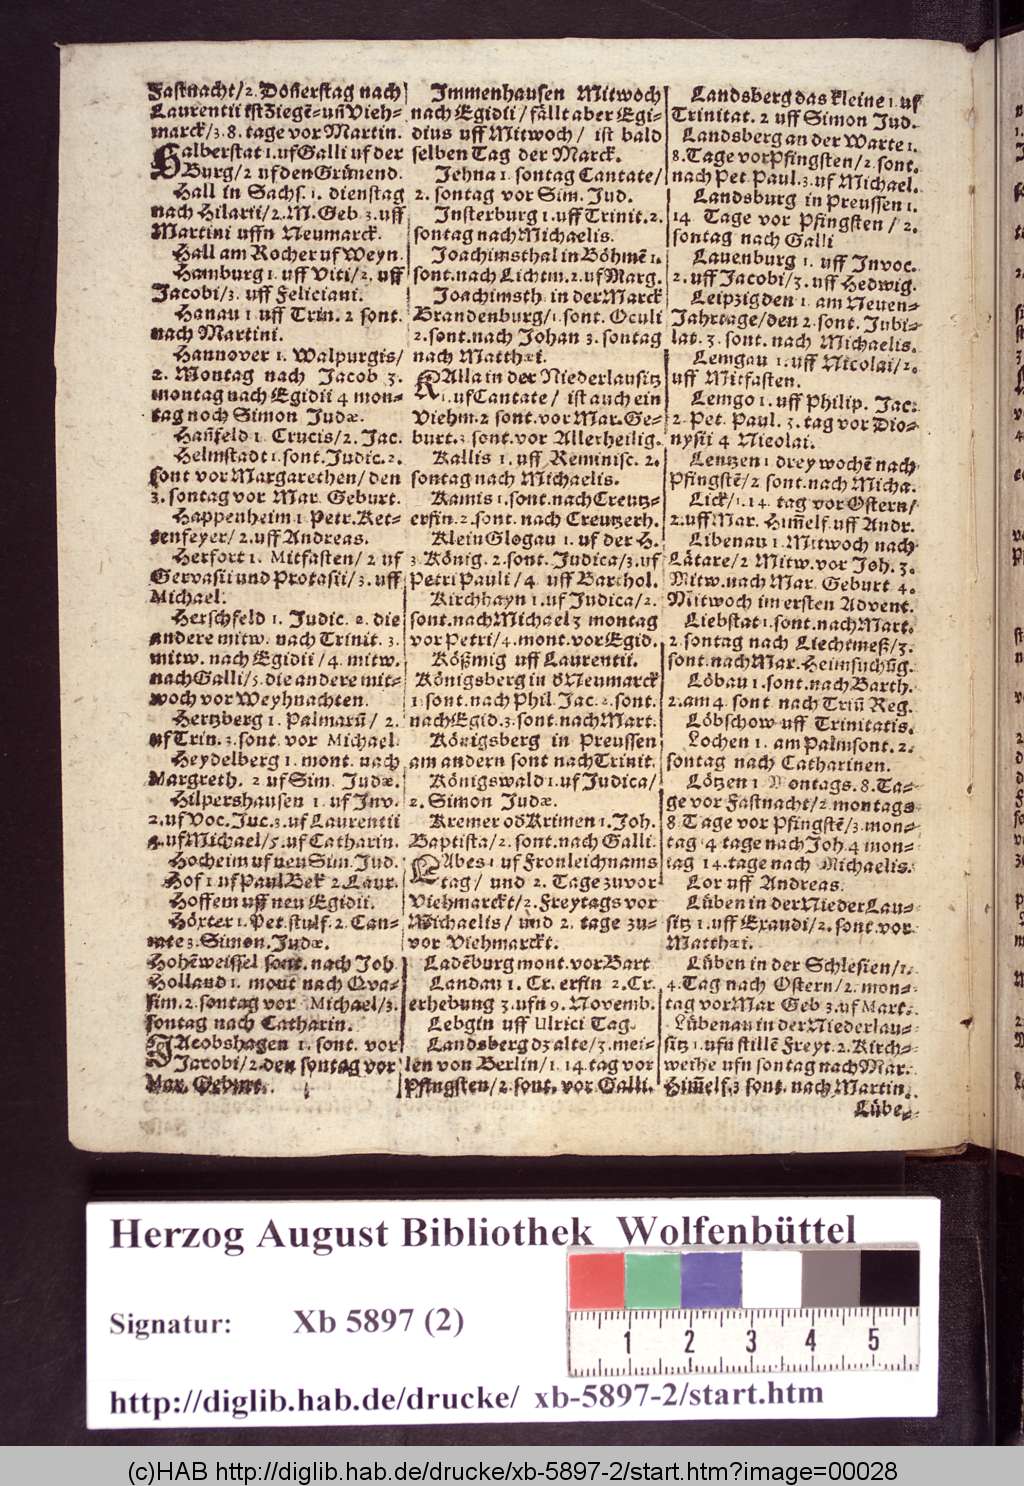 Fastnacht/2. Doñerstag nach
Laurentii ist Ziegē- uñ Vieh-
marck/3. 8. tage vor Martin.
Halberstat 1. uf Galli uf der
Burg/2 uf den Grünend.
Hall in Sachs. 1. dienstag
nach Hilarii/2. M. Geb 3. uff
Martini uffn Neumarck.
Hall am Rocher uf Weyn.
Hamburg 1. uff Viti/2. uff
Jacobi/3. uff Feliciani.
Hanau 1. uff Trin. 2 sont.
nach Martini.
Hannover 1. Walpurgis/
2. Montag nach Jacob 3.
montag nach Egidii 4 mon-
tag noch Simon Judæ.
Hañfeld 1. Crucis/2. Jac.
Helmstadt 1. sont. Judic. 2.
sont vor Margarethen/den
3. sontag vor Mar. Geburt.
Happenheim 1 Petr. Ket-
tenfeyer/2. uff Andreas.
Herfort 1. Mitfasten/2 uf
Gervasii und Protasii/3. uff
Michael.
Herschfeld 1. Judic. 2. die
andere mitw. nach Trinit. 3.
mitw. nach Egidii/4. mitw.
nach Galli/5. die andere mit-
woch vor Weyhnachten.
Hertzberg 1. Palmarū/2.
uf Trin. 3. sont. vor Michael.
Heydelberg 1. mont. nach
Margreth. 2 uf Sim. Judæ.
Hilpershausen 1. uf Inv.
2. uf Voc. Juc. 3. uf Laurentii
4. uf Michael/5. uf Catharin.
Hocheim uf neu Sim. Jud.
Hof 1 uf Paul Bek 2 Laur.
Hoffem uff neu Egidii.
Höxter 1. Pet. stulf. 2. Can-
tate 3. Simon. Judæ.
Hohēweissel sont. nach Joh
Holland 1. mont nach Qva-
sim. 2. sontag vor Michael/3.
sontag nach Catharin.
Jacobshagen 1. sont. vor
Jacobi/2. den sontag vor
Mar. Geburt.
Immenhausen Mitwoch
nach Egidii/fällt aber Egi-
dius uff Mitwoch/ist bald
selben Tag der Marck.
Jehna 1. sontag Cantate/
2. sontag vor Sim. Jud.
Insterburg 1. uff Trinit. 2.
sontag nach Michaelis.
Joachimsthal in Böhmē 1.
sont. nach Lichtm. 2. uf Marg.
Joachimsth. in der Marck
Brandenburg/1. sont. Oculi
2. sont. nach Johan 3. sontag
nach Matthæi.
Kalla in der Niederlausitz
1. uf Cantate/ist auch ein
Viehm. 2 sont. vor Mar. Ge-
burt. 3 sont. vor Allerheilig.
Kallis 1. uff Reminisc. 2.
sontag nach Michaelis.
Kamis 1. sont. nach Creutz-
erfin. 2. sont. nach Creutzerh.
Klein Glogau 1. uf der H.
3 König. 2. sont. Judica/3. uf
Petri Pauli/4. uff Barthol.
Kirchhayn 1. uf Judica/2.
sont. nach Michael 3 montag
vor Petri/4. mont. vor Egid.
Kößmig uff Laurentii.
Königsberg in d Neumarck
1. sont. nach Phil. Jac. 2. sont.
nach Egid. 3. sont. nach Mart.
Königsberg in Preussen
am andern sont nach Trinit.
Königswald 1. uf Judica/
2. Simon Judæ.
Kremer od Krimen 1. Joh.
Baptista/2. sont. nach Galli.
Labes 1 uf Fronleichnams
tag/und 2. Tage zuvor
Viehmarckt/2. Freytags vor
Michaelis/und 2. tage zu-
vor Viehmarckt.
Ladēburg mont. vor Bart
Landau 1. Cr. erfin 2. Cr.
erhebung 3. ufn 9. Novemb.
Lebgin uff Ulrici Tag.
Landsberg dz alte/3. mei-
len von Berlin/1. 14. tag vor
Pfingsten/2. sont. vor Galli.
Landsberg das kleine 1. uf
Trinitat. 2 uff Simon Jud.
Landsberg an der Warte 1.
8. Tage vor Pfingsten/2. sont.
nach Pet. Paul. 3. uf Michael.
Landsburg in Preussen 1.
14 Tage vor Pfingsten/2.
sontag nach Galli
Lauenburg 1. uff Invoc.
2. uff Jacobi/3. uff Hedwig.
Leipzig den 1. am Neuen-
Jahrtage/den 2. sont. Jubi-
lat. 3. sont. nach Michaelis.
Lemgau 1. uff Nicolai/2.
uff Mitfasten.
Lemgo 1. uff Philip. Jac.
2. Pet. Paul. 3. tag vor Dio-
nysii 4 Nicolai.
Lentzen 1 drey wochē nach
Pfingstē/2 sont. nach Micha.
Lick/1. 14. tag vor Ostern/
2. uff Mar. Him̄elf. uff Andr.
Libenau 1. Mitwoch nach
Lätare/2 Mitw. vor Joh. 3.
Mitw. nach Mar. Geburt 4.
Mitwoch im ersten Advent.
Liebstat 1. sont. nach Mart.
2. sontag nach Liechtmeß/3.
sont. nach Mar. Heimsuchūg.
Löbau 1. sont. nach Barth.
2. am 4. sont nach Trin̄ Reg.
Löbschow uff Trinitatis.
Lochen 1. am Palmsont. 2.
sontag nach Catharinen.
Lötzen 1 Montags. 8. Ta-
ge vor Fastnacht/2. montags
8. Tage vor Pfingstē/3. mon-
tag 4 tage nach Joh. 4 mon-
tag 14. tage nach Michaelis.
Lor uff Andreas.
Lüben in der Nieder Lau-
sitz 1. uff Exaudi/2. sont. vor
Matthæi.
Lüben in der Schlesien/1.
4. Tag nach Ostern/2. mon-
tag vor Mar Geb 3. uf Mart.
Lübenau in der Niederlau-
sitz 1. ufn stillē Freyt. 2. Kirch-
weihe ufn sontag nach Mar.
Him̄elf. 3 sont. nach Martin.
Lübe-
Herzog August Bibliothek Wolfenbüttel
Signatur: Xb 5897 (2)
1 2 3 4 5
http://diglib.hab.de/drucke/ xb-5897-2/start.htm
(c)HAB http://diglib.hab.de/drucke/xb-5897-2/start.htm?image=00028